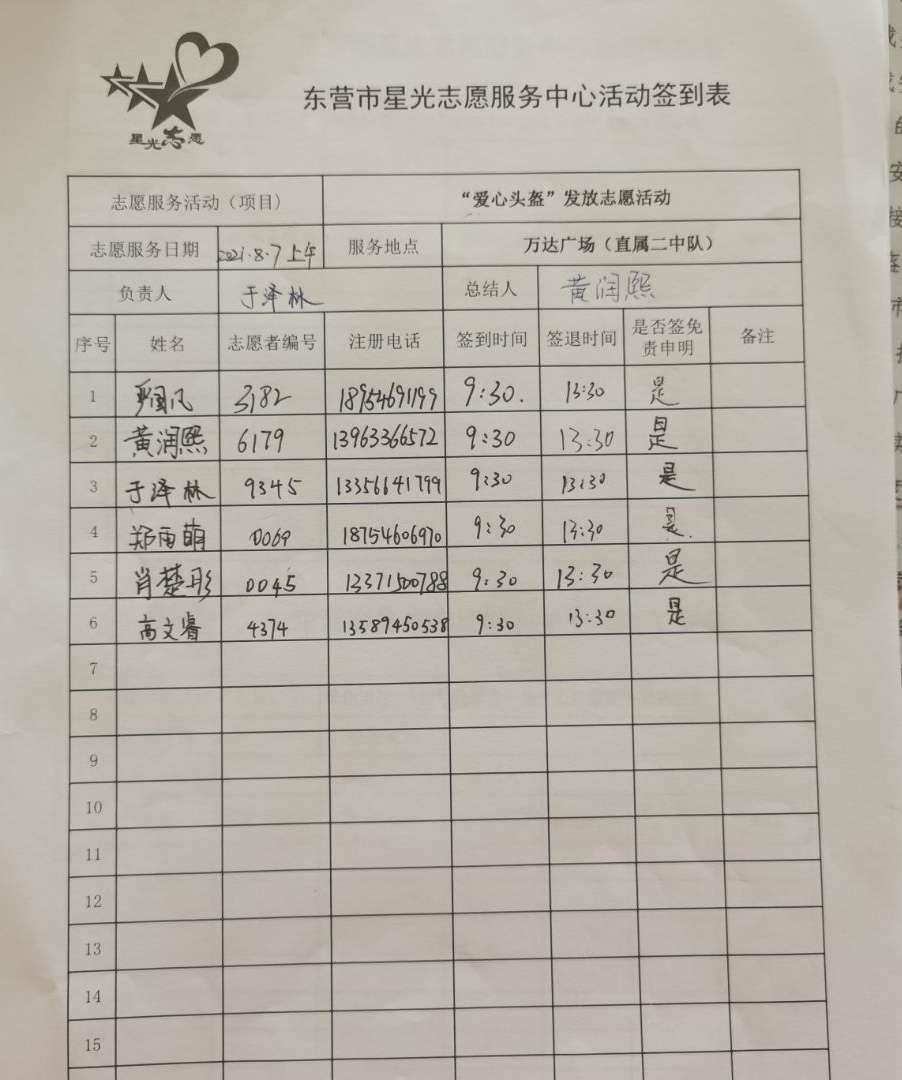 东营市星光志愿服务中心活动签到表
星光志愿
志愿服务活动（项目） “爱心头盔”发放志愿活动
志愿服务日期 2021.8.7上午 服务地点 万达广场（直属二中队）
负责人 于泽林 总结人 黄润熙
序号 姓名 志愿者编号 注册电话 签到时间 签退时间 是否签免责申明 备注
1 3182 18954691199 9:30. 13:30 是
2 黄润熙 6179 13963366572 9:30 13:30 是
3 于泽林 9345 13356641799 9:30 13:30 是
4 郑雨萌 0069 18754606970 9:30 13:30 是
5 肖楚彤 0045 13371500788 9:30 13:30 是
6 高文睿 4374 13589450538 9:30 13:30 是
7
8
9
10
11
12
13
14
15